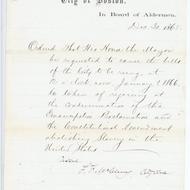 City of Boston.
In Board of Aldermen.
Dec. 30, 1865.
Ordered That His Honor the Mayor
be requested to cause the bells
of the City to be rung at
12 o'clock noon, January 1, 1866,
in token of rejoicing at
the confirmation of the
Emancipation Proclamation and
the Constitutional Amendment
abolishing Slavery in the
United States.